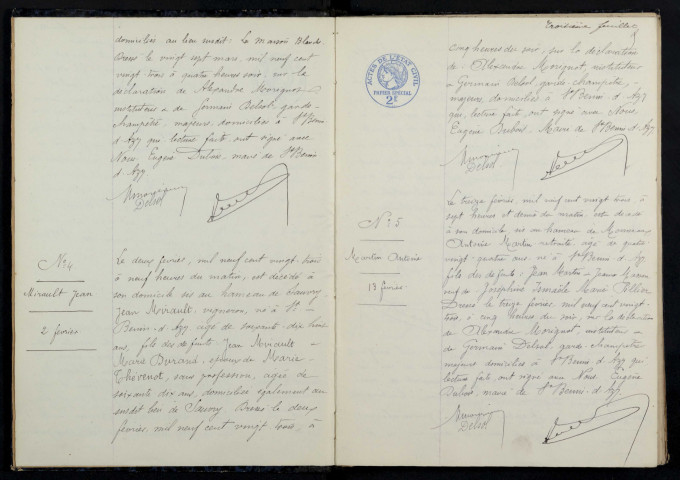 domiciliés au lieu inedit: La maison Blanche
Dressé le vingt sept mars, mil neuf cent
vingt trois à quatre heures soir, sur la
déclaration de Alexandre Morignot
instituteur & de Germain Delsol garde-
champêtre, majeurs, domiciliés à St Benin
d'Azy qui lecture faite ont signé avec
Nous, Eugène Dubois, maire de St Benin
d'Azy
Morignot
Delsol
No 4
Mirault Jean
2 février
Le deux février, mil neuf cent vingt trois
à neuf heures du matin, est décédé à
son domicile sis au hameau de
Jean Mirault, vigneron, né à St
Benin d'Azy âgé de soixante dix huit
ans, fils des défunts Jean Mirault &
Marie Durand, époux de Marie
Thévenot, sans profession, agée de
soixante dix ans, domiciliée également au
susdit lieu de Dressé le deux
février, mil neuf cent vingt trois, à
Troisième feuillet
cinq heures du soir, sur la déclaration
de Alexandre Morignot, instituteur
& Germain Delsol, garde champêtre,
majeurs domiciliés à St Benin d'Azy
qui, lecture faite, ont signé avec Nous,
Eugène Dubois, Maire de St Benin d'Azy
Morignot
Delsol
ACTES DE L'ÉTAT CIVIL
PAPIER SPECIAL
2E
No 5
Martin Antoine
13 février
Le treize février, mil neuf cent vingt trois, à
sept heures et demie du matin, est décédé
à son domicile sis au hameau de
Antoine Martin retraité, agé de quatre
vingt quatre ans, né à St Benin d'Azy
fils des défunts: Jean Martin & Jeanne
veuf de Joséphine Marie Tellier
Dressé le treize février, mil neuf cent vingt-
trois, à cinq heures du soir, sur la déclaration
de Alexandre Morignot, instituteur &
de Germain Delsol, garde champêtre
majeurs domiciliés à St Benin d'Azy qui
lecture faite, ont signé avec Nous Eugène
Dubois, maire de St Benin d'Azy.
Morignot
Delsol